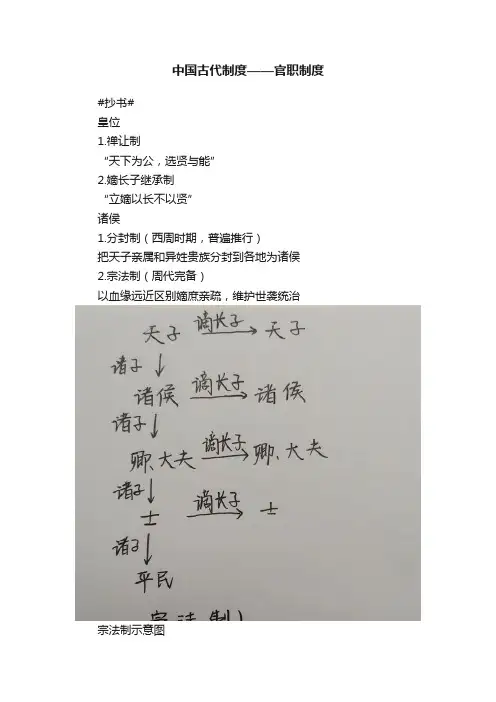 中国古代制度——官职制度
#抄书#
皇位
1.禅让制
“天下为公，选贤与能”
2.嫡长子继承制
“立嫡以长不以贤”
诸侯
1.分封制（西周时期，普遍推行）
把天子亲属和异姓贵族分封到各地为诸侯
2.宗法制（周代完备）
以血缘远近区别嫡庶亲疏，维护世袭统治
天子 谪长子 天子
诸子
诸侯 谪长子 诸侯
诸子
卿、大夫 谪长子 卿、大夫
诸子
士 谪长子 士
诸子
平民
宗法制)
宗法制示意图